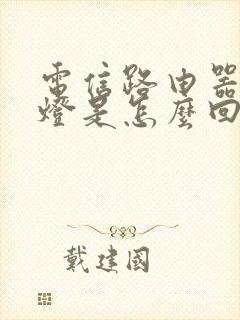 電信路由器
燈是怎麼回
戴建國